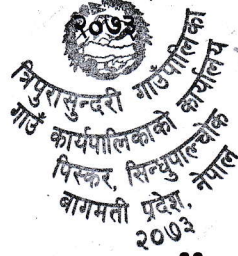 २०७३
त्रिपुरासुन्दरी गाउँपालिका
गाउँ कार्यपालिकाको कार्यालय
पिस्कर, सिन्धुपाल्चोक
बागमती प्रदेश, नेपाल
२०७३